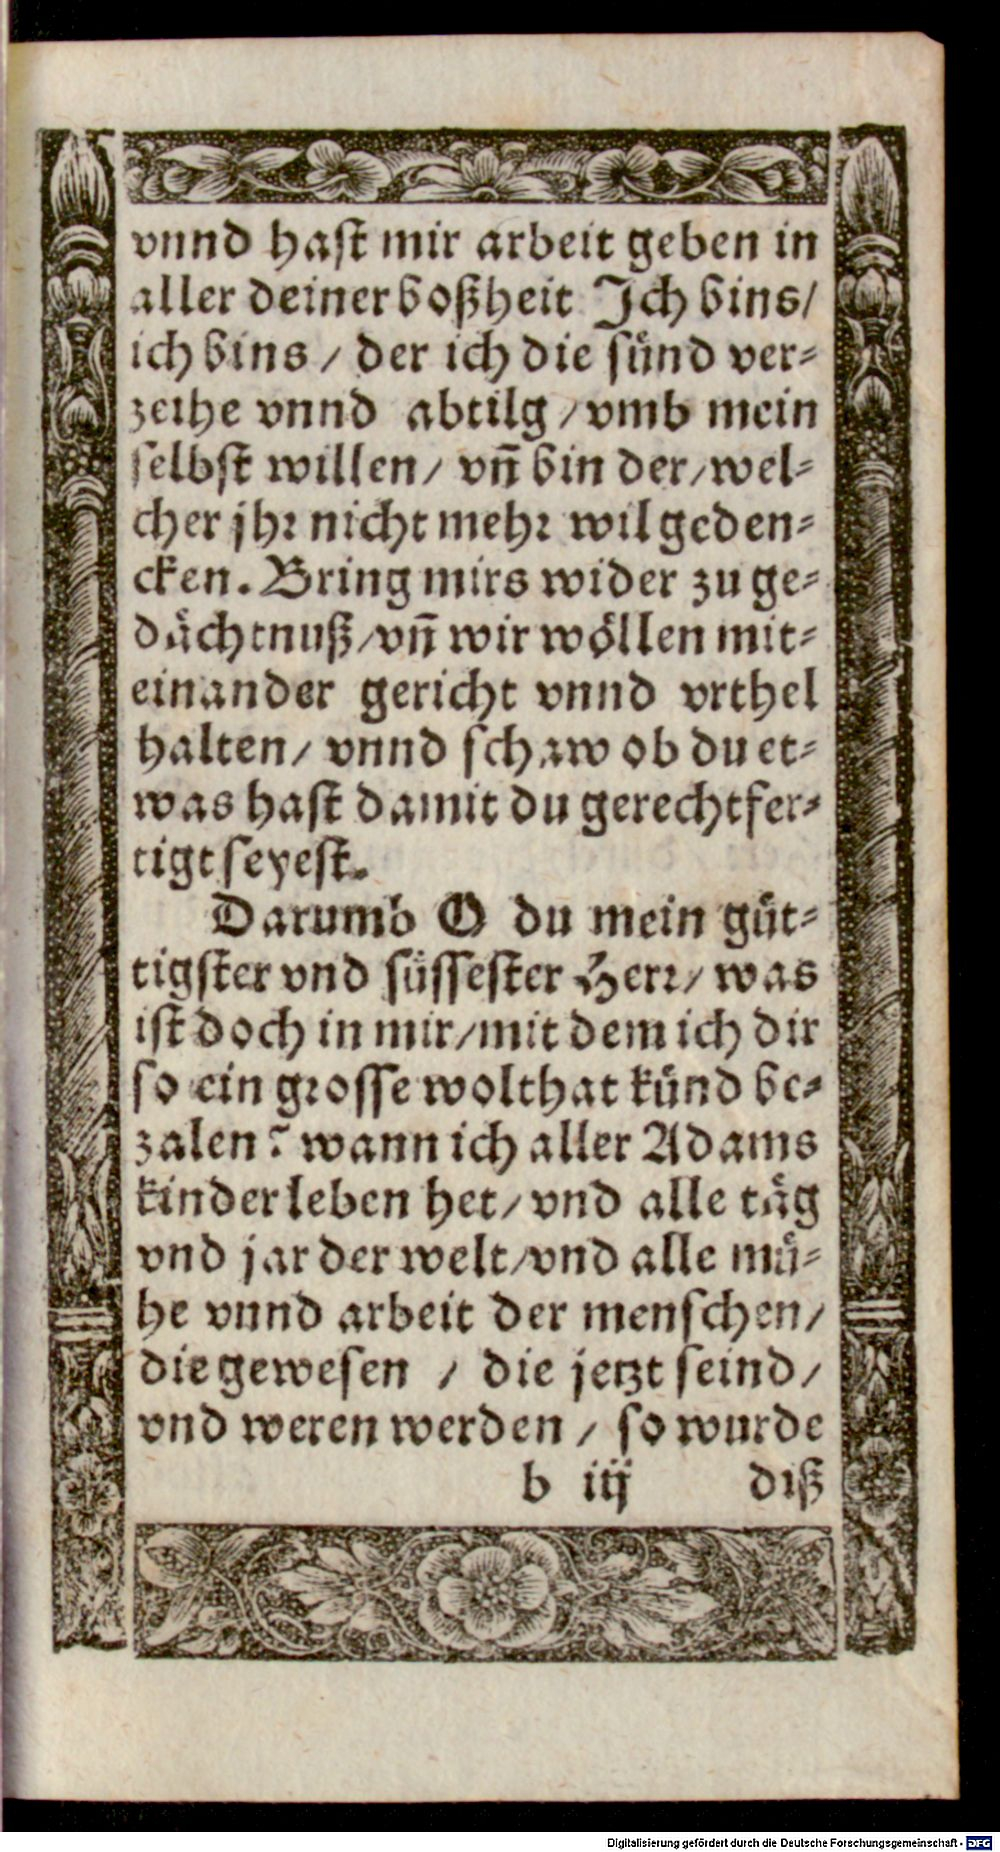 vnnd hast mir arbeit geben in
aller deiner boßheit Ich bins/
ich bins / der ich die sünd ver⸗
zeihe vnnd abtilg / vmb mein
selbst willen / vñ bin der / wel⸗
cher jhr nicht mehr wil geden⸗
cken. Bring mirs wider zu ge⸗
dächtnuß / vñ wir wöllen mit⸗
einander gericht vnnd vrthel
halten / vnnd schaw ob du et⸗
was hast damit du gerechtfer⸗
tigt seyest.
Darumb O du mein güt⸗
tigster vnd süssester Herr / was
ist doch in mir / mit dem ich dir
so ein grosse wolthat künd be⸗
zalen? wann ich aller Adams
kinder leben het / vnd alle täg
vnd jar der welt / vnd alle mü⸗
he vnnd arbeit der menschen /
die gewesen / die jetzt seind /
vnd weren werden / so wurde
b iij diß
Digitalisierung gefördert durch die Deutsche Forschungsgemeinschaft - DFG